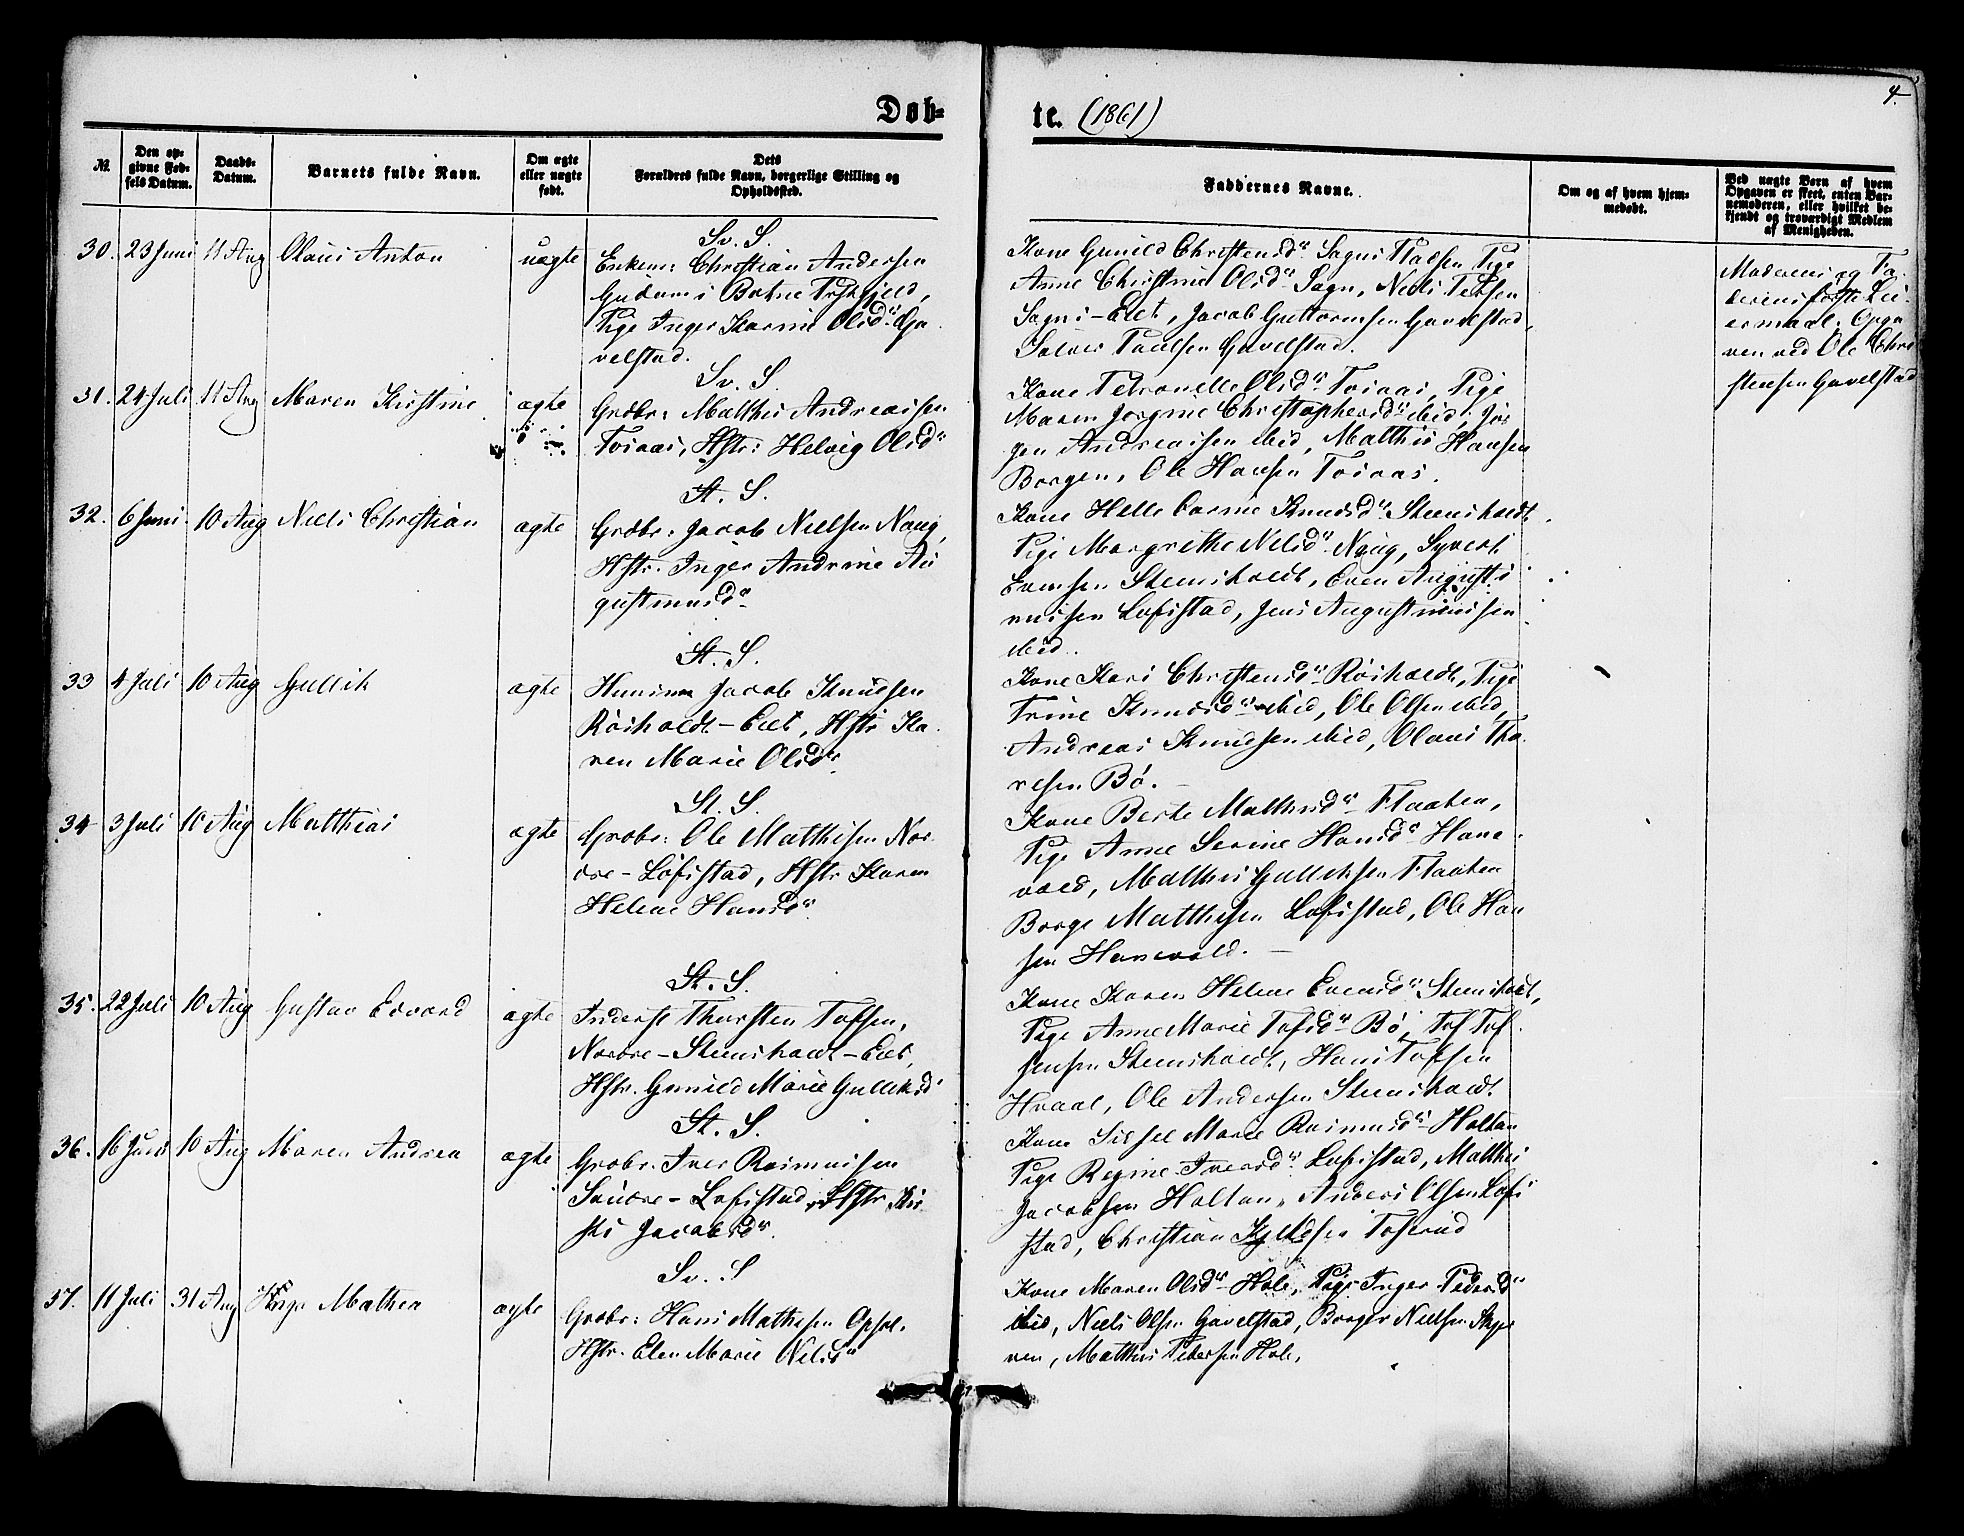 4.
Døb-
te. (1861)
№.
Den op-
givne Fød-
sels Datum.
Daabs-
Datum.
Barnets fulde Navn.
Om ægte
eller uægte
født.
Dets
Forældres fulde Navn, borgerlige Stilling og
Opholdssted.
Faddernes Navne.
Om og af hvem hjem-
medøbt.
Ved uægte Børn af hvem
Opgaven er skeet, enten Bar-
nemoderen, eller hvilket be-
kjendt og troværdigt Medlem
af Menigheden.
30. 23 Juni 11 Aug Olaus Anton uægte
Sv. S.
Enkem: Christian Andersen
i Botne Præstgjeld,
Pige Inger Karine Olsdr Ga-
velstad.
Kone Gunild Christensdr Sogn, Pige
Anne Christine Olsdr Sogn, Niels
Sogn-Eiet, Jacob Guttormsen Gavelstad,
Paulsen Gavelstad.
Moderens og Fa-
derens første Lei-
ermaal. Opga-
ven ved Ole Chri-
stensen Gavelstad
31. 24 Juli 11 Aug Maren Kirstine ægte
Sv. S.
Grdbr: Mathis Andreassen
Toraas, Hstr: Helvig Olsdr
Kone Petronelle Olsdr Toraas, Pige
Maren Jorgine Christophersdr ibid, Jør-
gen Andreassen ibid, Matthis Hansen
Borgen, Ole Hansen Toraas.
32. 6 Juni 10 Aug Niels Christian ægte
St. S.
Grdbr: Jacob Nielsen Naug,
Hstr. Inger Andrine Au-
gustinusdr
Kone Helle Carine Knudsdr Steensholdt
Pige Margrethe Nilsdr Naug, Syvert
Evensen Steensholdt, Even Augusti-
nussen Lofsstad, Jens Augustinussen
ibid.
33 4 Juli 10 Aug Gullik ægte
St. S.
Husm Jacob Knudsen
Røisholdt-Eiet, Hstr Ka-
ren Marie Olsdr
Kone Kari Christensdr Røisholdt, Pige
Trine Knudsdr ibid, Ole Olsen ibid,
Andreas Knudsen ibid, Olaus Tho-
resen Bø.
34 3 Juli 10 Aug Matthias ægte
St. S.
Grdbr: Ole Matthisen Nor-
dre-Lofsstad, Hstr Karen
Helene Hansdr
Kone Berte Mathisdr Flaaten,
Pige Anne Serine Hansdr Hane-
vold, Mathis Gulliksen Flaaten
Borge Matthisen Lofsstad, Ole Han-
sen Hanevold.
35. 22 Juli 10 Aug Gustav Edvard ægte
St. S.
Inderst Thorsten Tofsen,
Nordre-Steensholdt-Eiet,
Hstr. Gunild Marie Gulliksd
Kone Karen Helene Evensdr Steensholdt,
Pige Anne Marie Tofsdr Bø, Tof Tof-
sensen Steensholdt, Hans Tofsen
Hvaal, Ole Andersen Steensholdt
36. 16 Juli 10 Aug Maren Andrea ægte
St. S.
Grdbr. Iver Rasmussen
Søndre-Lofsstad, Hstr. Kir-
sti Jacobsdr.
Kone Sidsel Marie Rasmusdr Holtan
Pige Regine Iversdr Lofsstad, Mathis
Jacobsen Holtan, Anders Olsen Lofs-
stad, Christian Kjeldsen Tofserud
37. 11 Juli 31 Aug Mathea ægte
Sv. S
Grdbr: Hans Mathisen Opsal.
Hstr. Elen Marie Nilsdr
Kone Maren Olsdr Hole, Pige Inger Pedersdr
ibid, Niels Olsen Gavelstad, Borger Nielsen
ven, Mathis Pedersen Hole,